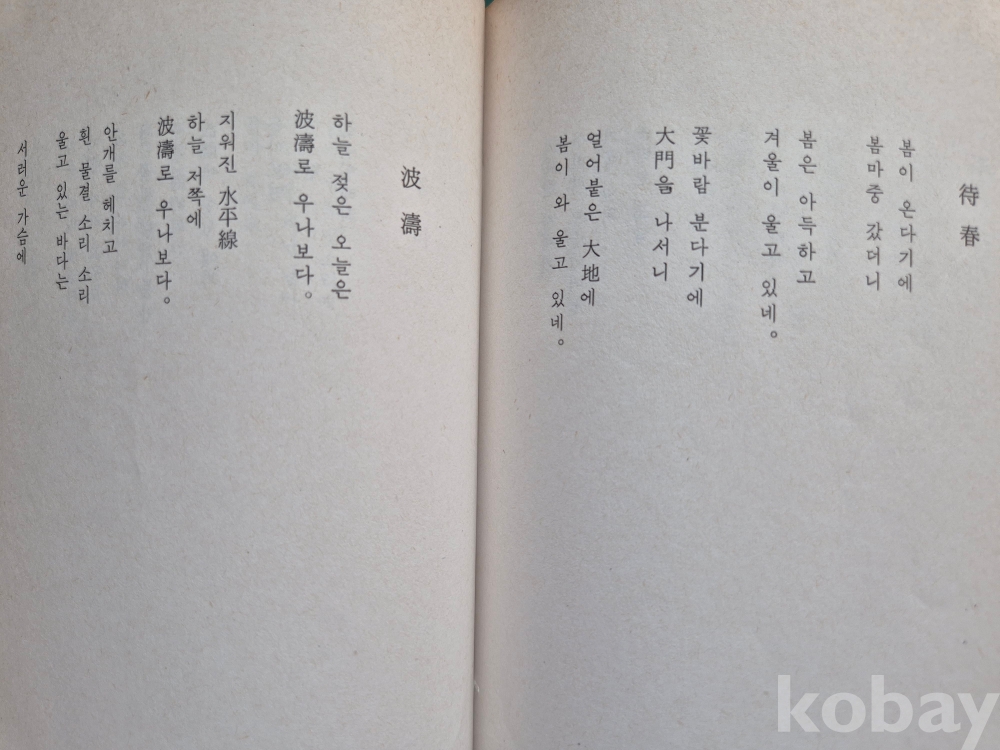 待春
봄이 온다기에
봄마중 갔더니
봄은 아득하고
겨울이 울고 있네。
꽃바람 분다기에
大門을 나서니
얼어붙은 大地에
봄이 와 울고 있네。
波濤
하늘 젖은 오늘은
波濤로 우나보다。
지워진 水平線
하늘 저쪽에
波濤로 우나보다。
안개를 헤치고
흰 물결 소리 소리
울고 있는 바다는
서러운 가슴에
kobay